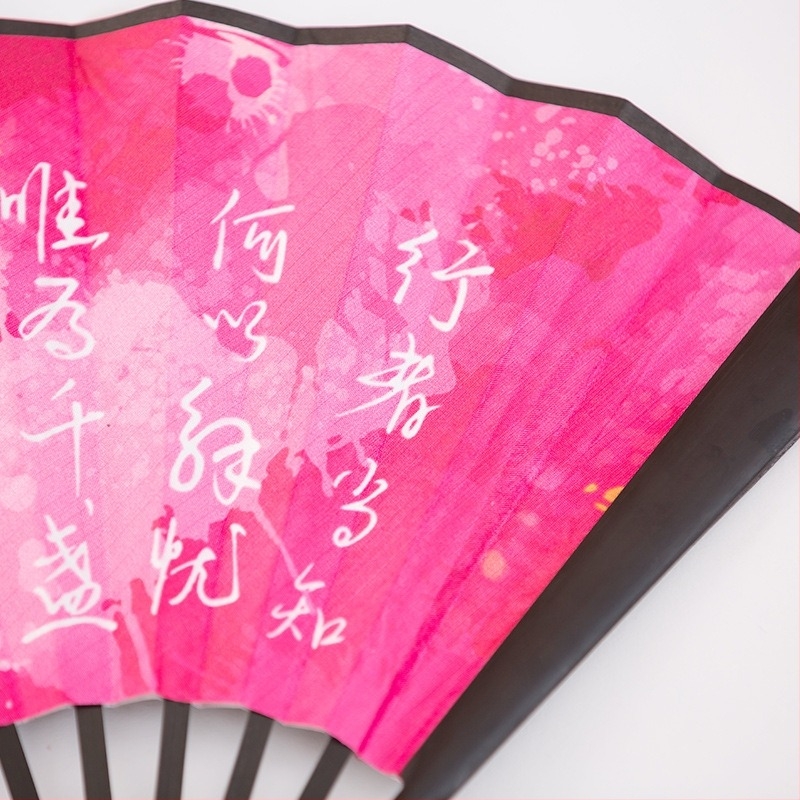 行者当知
何以解忧
唯为千盏